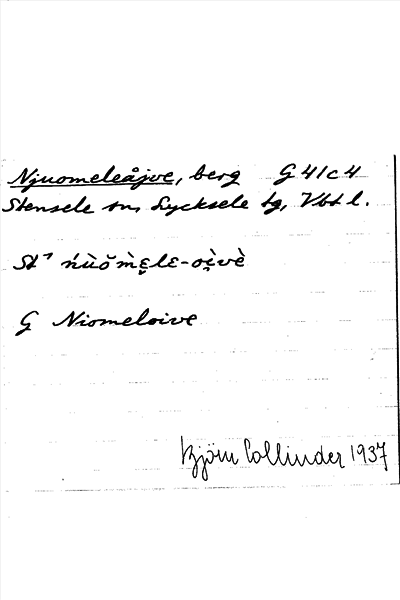 Njuomeleåjve, berg G 41c4
Stensele sn, Lycksele tg, Vbt l.
St⁷ ńùŏm̀ę̀lɛ-oi̯vè
G Niomeloive
Björn Collinder 1937